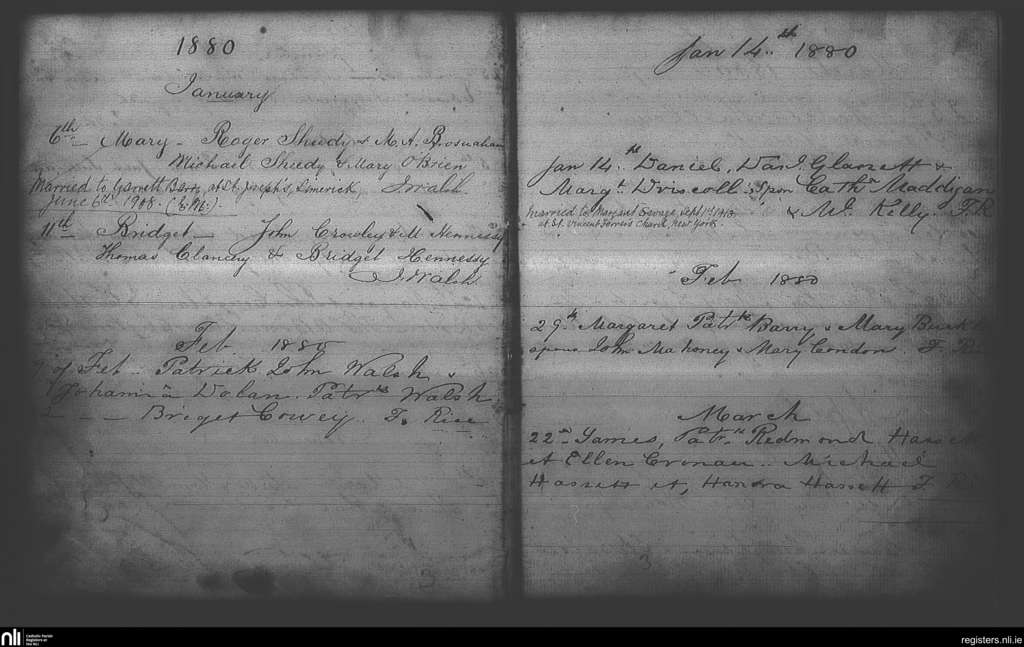 1880
January
6th Mary - Roger Sheedy & M. A. Brosnahan
Michael Sheedy & Mary O'Brien
Married to Garrett Barry, at St. Joseph's, Limerick, J. Walsh
June 6th 1908. (E.M.)
11th Bridget - John Crowley & M. Hennessy
Thomas Clancey & Bridget Hennessy
J. Walsh
Feb 1880
7 of Feb - Patrick John Walsh &
Johanna Dolan. Patrk Walsh
Briget Covey. T. Rice
Jan 14th 1880
Jan 14th Daniel, Danl Glavett &
Margt Driscoll: Spon Cathne Maddigan
& Ml. Kelly. T. R
Married to Margaret Savage, Sept 1913
at St. Vincent Ferrer's Church, New York.
Feb 1880
29th Margaret Patrk Barry & Mary Burk
spons John Mahoney & Mary Condon T. Ri
March
22nd James, Patrk Redmond Hasset
et Ellen Cronan.. Michael
Hassett et, Hanora Hassett T. R
3
3
nli
Catholic Parish
Registers at
the NLI
registers.nli.ie